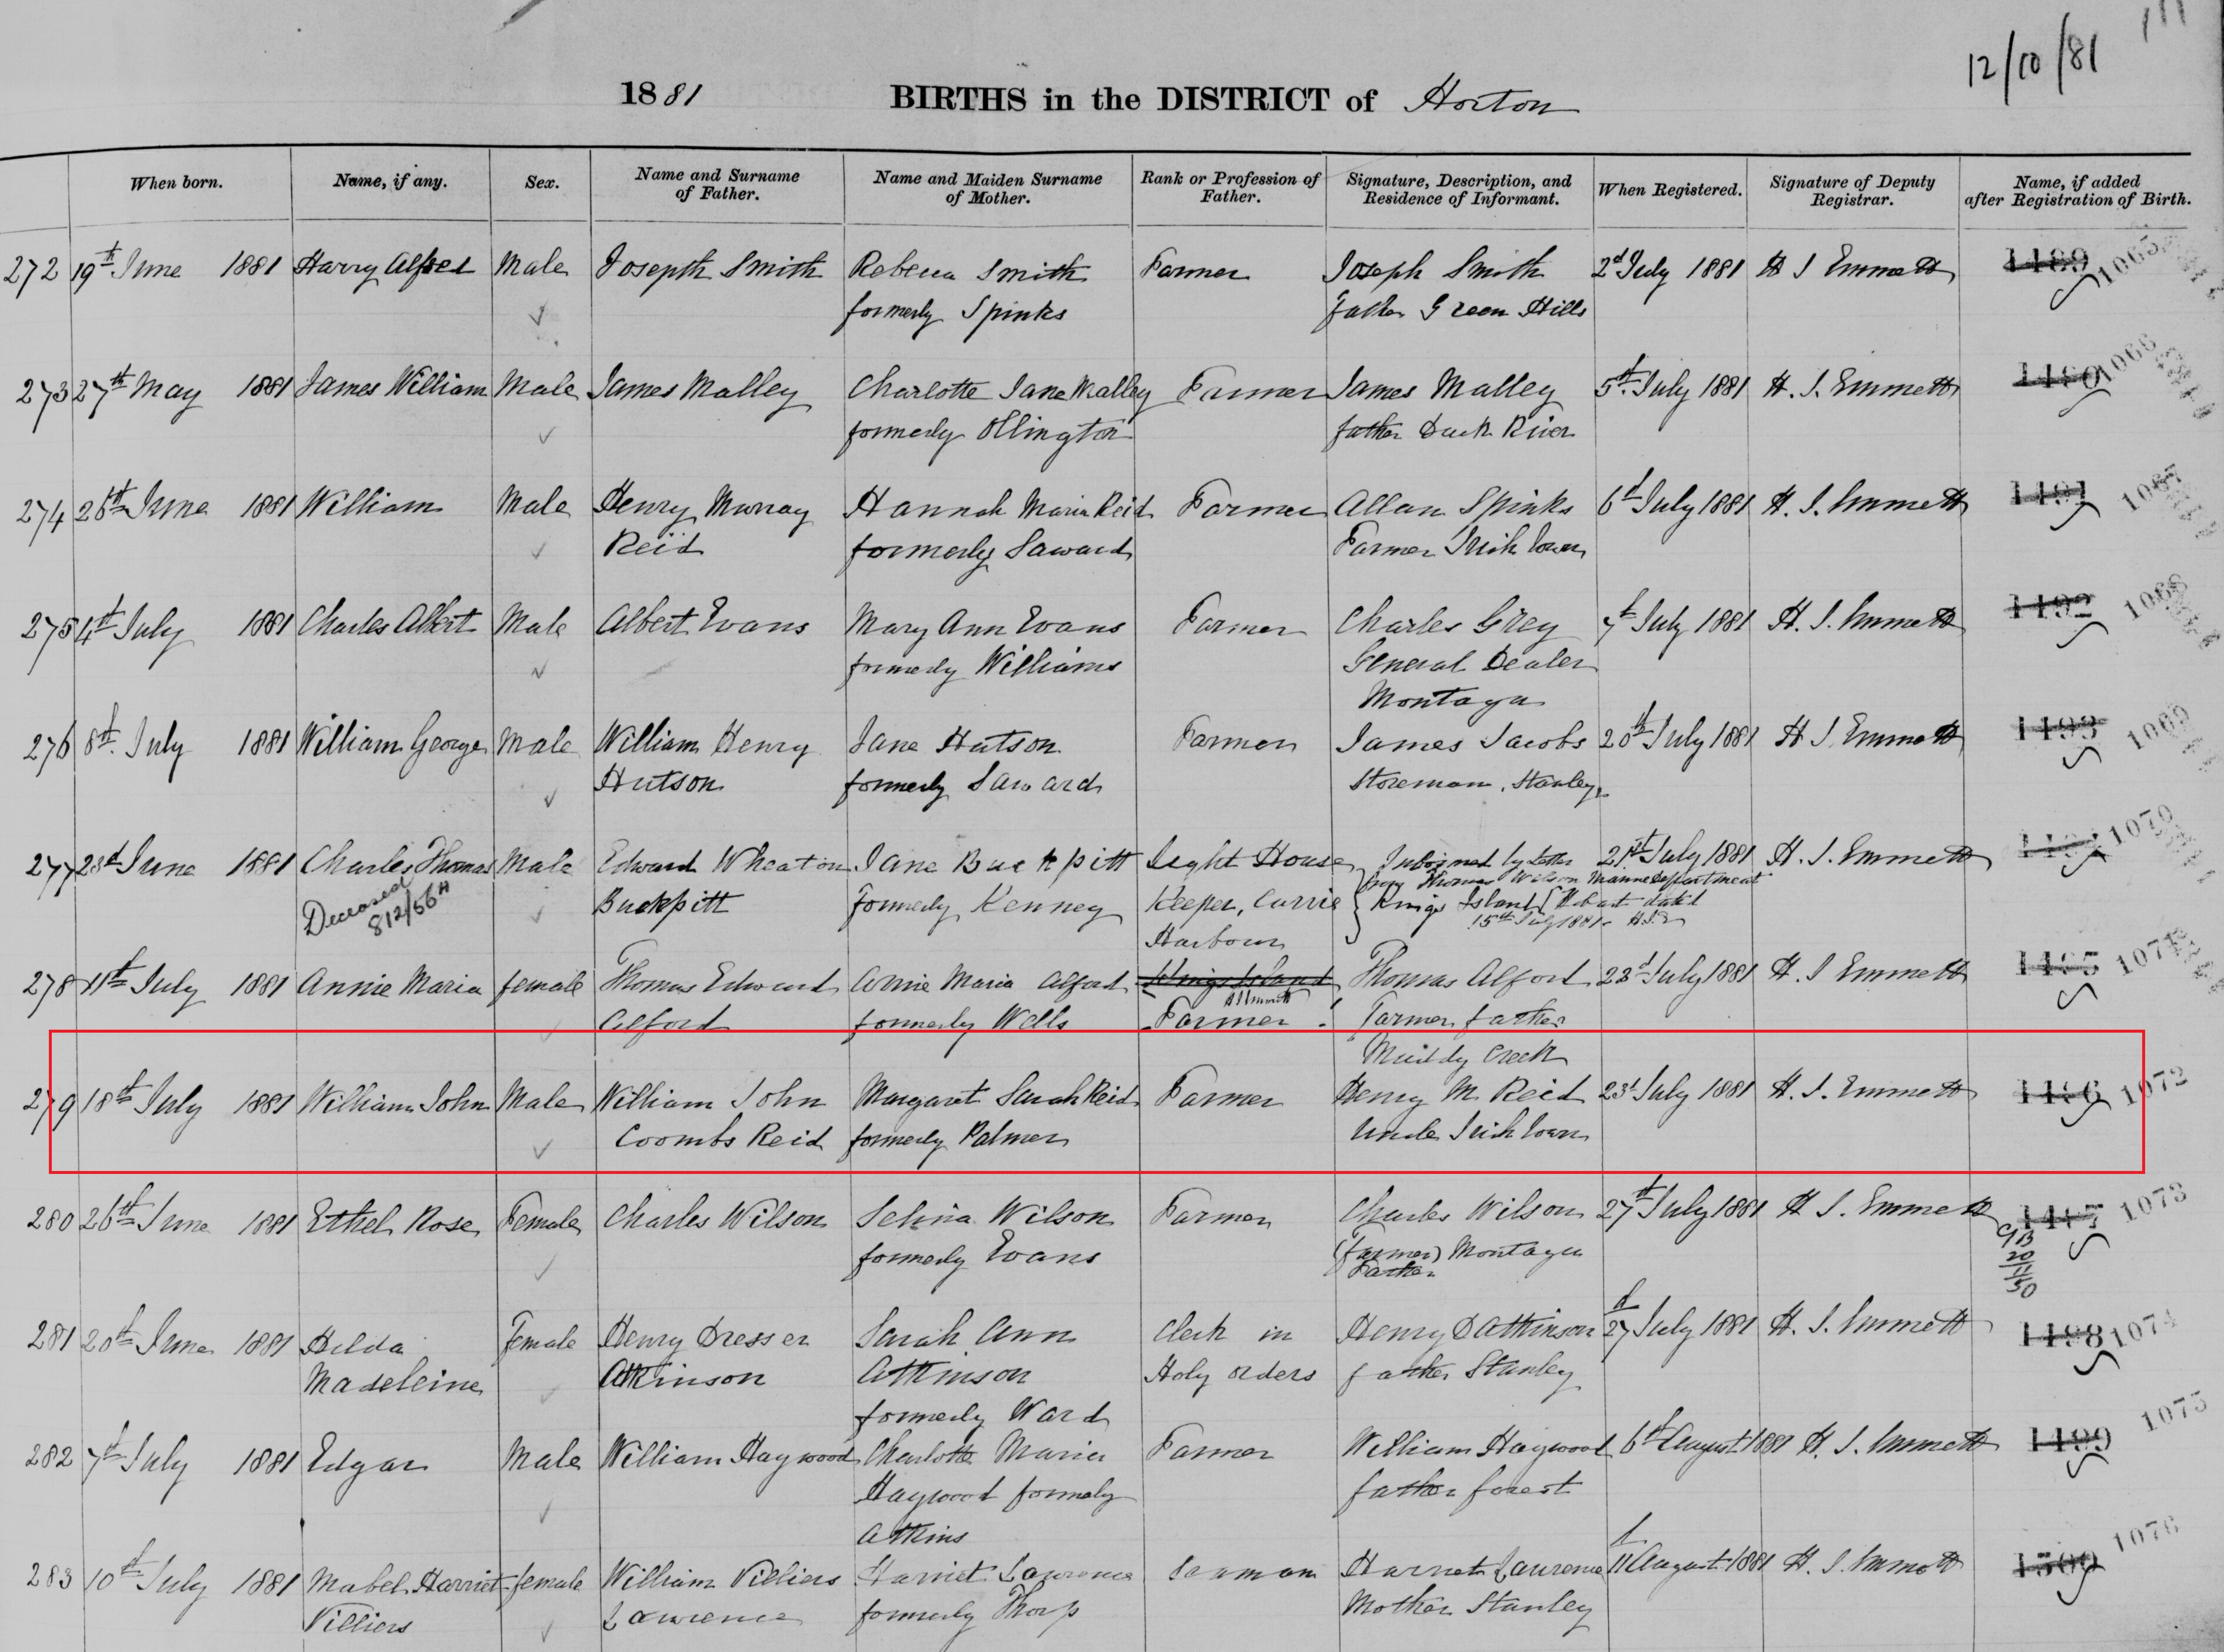 12/10/81
1881 BIRTHS in the DISTRICT of Horton
When born. Name, if any. Sex. Name and Surname of Father. Name and Maiden Surname of Mother. Rank or Profession of Father. Signature, Description, and Residence of Informant. When Registered. Signature of Deputy Registrar. Name, if added after Registration of Birth.
272 19th June 1881 Harry Alfred Male Joseph Smith Rebecca Smith Farmer Joseph Smith 2d July 1881 H J Emmett 1489 1065
formerly Spinks father Green Hills
273 27th May 1881 James William Male James Malley Charlotte Jane Malley Farmer James Malley 5th July 1881 H. J. Emmett 1490 1066
formerly Ollington father Duck River
274 26th June 1881 William Male Henry Murray Hannah Maria Reid Farmer Allan Spinks 6th July 1881 H. J. Emmett 1491 1067
Reid formerly Saward Farmer Irish Town
275 4th July 1881 Charles Albert Male Albert Evans Mary Ann Evans Farmer Charles Grey 7th July 1881 H. J. Emmett 1492 1068
formerly Williams General Dealer
Montagu
276 8th July 1881 William George Male William Henry Jane Hutson Farmer James Jacobs 20th July 1881 H J Emmett 1493 1069
Hutson formerly Saward Storeman, Stanley
277 23d June 1881 Charles Thomas Male Edward Wheaton Jane Buckpitt Light House Informed by letter 21st July 1881 H. J. Emmett 1494 1070
from Thomas Wilson Marine Department
Deceased 812/56H Buckpitt formerly Kenney Keeper, Currie Kings Island Hobart dated
15th July 1881. H.J.E
Harbour
278 11th July 1881 Annie Maria female Thomas Edward Annie Maria Alford Kings Island Thomas Alford 23d July 1881 H. J Emmett 1495 1071
HJEmmett
Alford formerly Wells Farmer Farmer father
Muddy Creek
279 18th July 1881 William John Male William John Margaret Sarah Reid Farmer Henry M Reid 23d July 1881 H. J. Emmett 1496 1072
Coombs Reid formerly Palmer Uncle Irish Town
280 26th June 1881 Ethel Rose Female Charles Wilson Selina Wilson Farmer Charles Wilson 27th July 1881 H J. Emmett 1497 1073
formerly Evans (farmer) Montagu
Father
20
11
50
281 20th June 1881 Hilda Female Henry Dresser Sarah Ann Clerk in Henry D Atkinson 27th July 1881 H. J. Emmett 1498 1074
Madeleine Atkinson Atkinson Holy orders father Stanley
formerly Ward
282 7th July 1881 Edgar Male William Haywood Charlotte Maria Farmer William Haywood 6th August 1881 H. J. Emmett 1499 1075
Haywood formerly father forest
Atkins
283 10th July 1881 Mabel Harriet female William Villiers Harriet Lawrence Seaman Harriet Lawrence 11th August 1881 H. J. Emmett 1500 1076
Villiers Lawrence formerly Thorp Mother Stanley